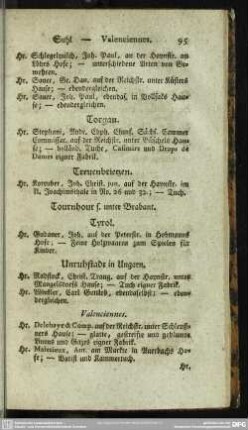 Suhl — Valenciennes. 95
Hr. Schlegelmilch, Joh. Paul, an der Haynstr. in
Ebders Hofe; — unterschiedene Arten von Ge-
wehren.
Hr. Sauer, Dan. auf der Reichstr. unter
Hause; — ebendergleichen.
Hr. Sauer, Joh. Paul, ebendas. in Vollsacks Hau-
se; — ebendergleichen.
Torgau.
Hr. Stephani, Andr. Chph. Churf. Sächs. Commer-
Commissar. auf der Reichstr. unter
se; — Tuche, Casimirs und Drops de
Dames eigner Fabrik.
Treuenbrietzen.
Hr. Joh. Christ. jun. auf der Haynstr. im
R. Joachimsthale in No. 26 und 32.; — Tuch.
Tournhour s. unter Brabant.
Tyrol.
Hr. Joh. auf der Peterstr. in Hofmanns
Hofe; — Feine Holzwaaren zum Spielen für
Kinder.
Unruhstadt in Ungarn.
Hr. Christ. Traug. auf der Haynstr. unter
Hause; — Tuch eigner Fabrik.
Hr. Winkler, Carl Gottlob, ebendaselbst; — eben-
dergleichen.
Valenciennes.
Hr. Comp. auf der Reichstr. unter
ners Hause; — glatte, gestreifte und geblümte
Linons und Gazes eigner Fabrik.
Hr. Ant. am Markte in Auerbachs Ho-
fe; — Batist und Kammertuch.
Hr.